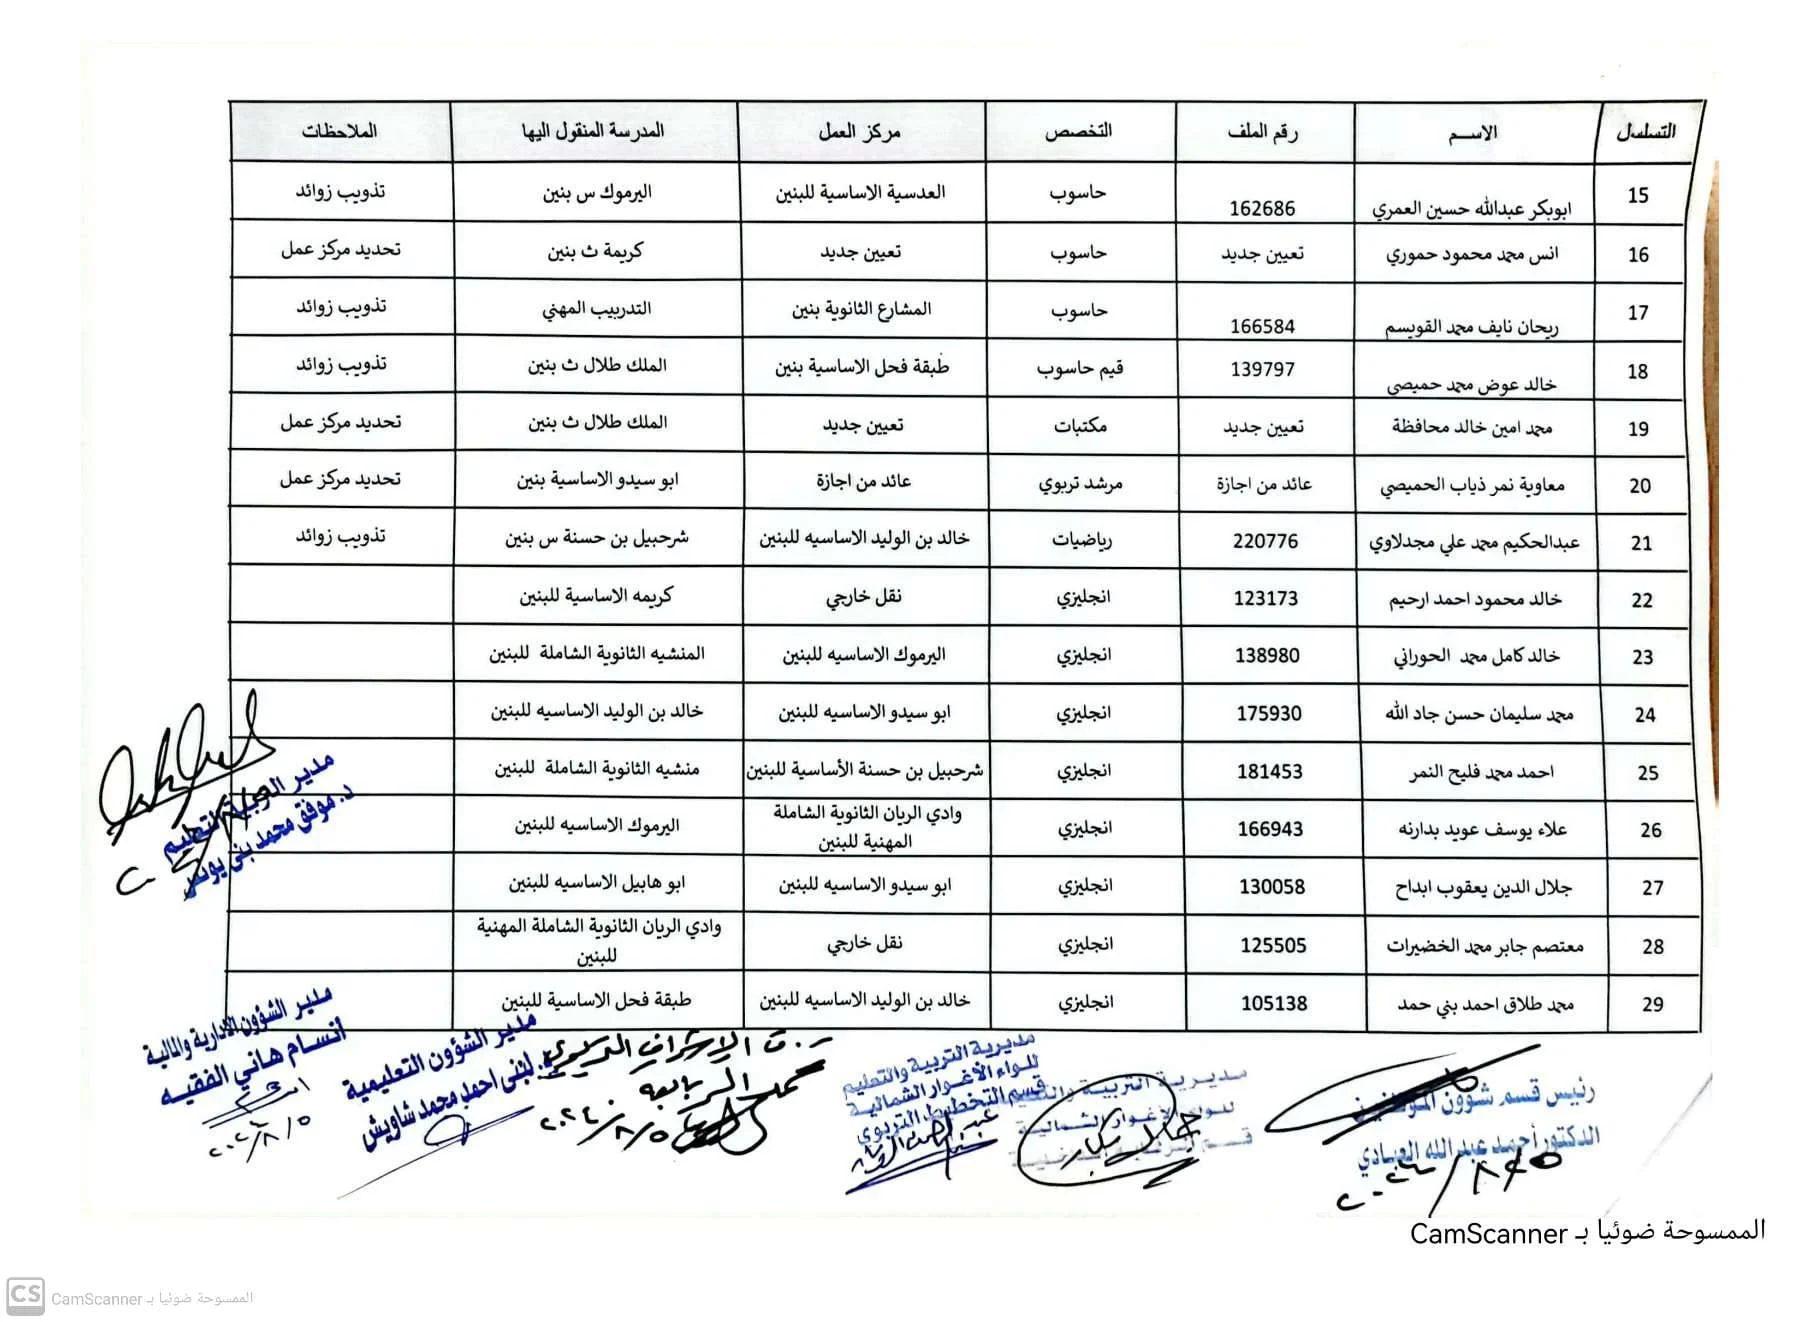 التسلسل الاســـم رقم الملف التخصص مركز العمل المدرسة المنقول اليها الملاحظات
15 ابوبكر عبدالله حسين العمري 162686 حاسوب العدسية الاساسية للبنين اليرموك س بنين تذويب زوائد
16 انس محمد محمود حموري تعيين جديد حاسوب تعيين جديد كريمة ث بنين تحديد مركز عمل
17 ريحان نايف محمد القويسم 166584 حاسوب المشارع الثانوية بنين التدريب المهني تذويب زوائد
18 خالد عوض محمد حميصي 139797 قيم حاسوب طبقة فحل الاساسية بنين الملك طلال ث بنين تذويب زوائد
19 محمد امين خالد محافظة تعيين جديد مكتبات تعيين جديد الملك طلال ث بنين تحديد مركز عمل
20 معاوية نمر ذياب الحميصي عائد من اجازة مرشد تربوي عائد من اجازة ابو سيدو الاساسية بنين تحديد مركز عمل
21 عبدالحكيم محمد علي مجدلاوي 220776 رياضيات خالد بن الوليد الاساسيه للبنين شرحبيل بن حسنة س بنين تذويب زوائد
22 خالد محمود احمد ارحيم 123173 انجليزي نقل خارجي كريمه الاساسية للبنين
23 خالد كامل محمد الحوراني 138980 انجليزي اليرموك الاساسيه للبنين المنشيه الثانوية الشاملة للبنين
24 محمد سليمان حسن جاد الله 175930 انجليزي ابو سيدو الاساسيه للبنين خالد بن الوليد الاساسيه للبنين
25 احمد محمد فليح النمر 181453 انجليزي شرحبيل بن حسنة الأساسية للبنين منشيه الثانوية الشاملة للبنين
26 علاء يوسف عويد بدارنه 166943 انجليزي وادي الريان الثانوية الشاملة المهنية للبنين اليرموك الاساسيه للبنين
27 جلال الدين يعقوب ابداح 130058 انجليزي ابو سيدو الاساسيه للبنين ابو هابيل الاساسيه للبنين
28 معتصم جابر محمد الخضيرات 125505 انجليزي نقل خارجي وادي الريان الثانوية الشاملة المهنية للبنين
29 محمد طلاق احمد بني حمد 105138 انجليزي خالد بن الوليد الاساسيه للبنين طبقة فحل الاساسية للبنين
مدير التربية والتعليم
د. موفق محمد بني يونس
رئيس قسم شؤون الموظفين
الدكتور أحمد عبدالله العبادي
٢٠٢٤/٨/٥
مديرية التربية والتعليم
للواء الأغوار الشمالية
مديرية التربية والتعليم
للواء الأغوار الشمالية
قسم التخطيط التربوي
ر.ق الإشراف التربوي
٢٠٢٤/٨/٥
مدير الشؤون التعليمية
د. لبنى احمد محمد شاويش
مدير الشؤون الادارية والمالية
أنسام هاني الفقيه
٢٠٢٤/٨/٥
الممسوحة ضوئيا بـ CamScanner
CS الممسوحة ضوئيا بـ CamScanner